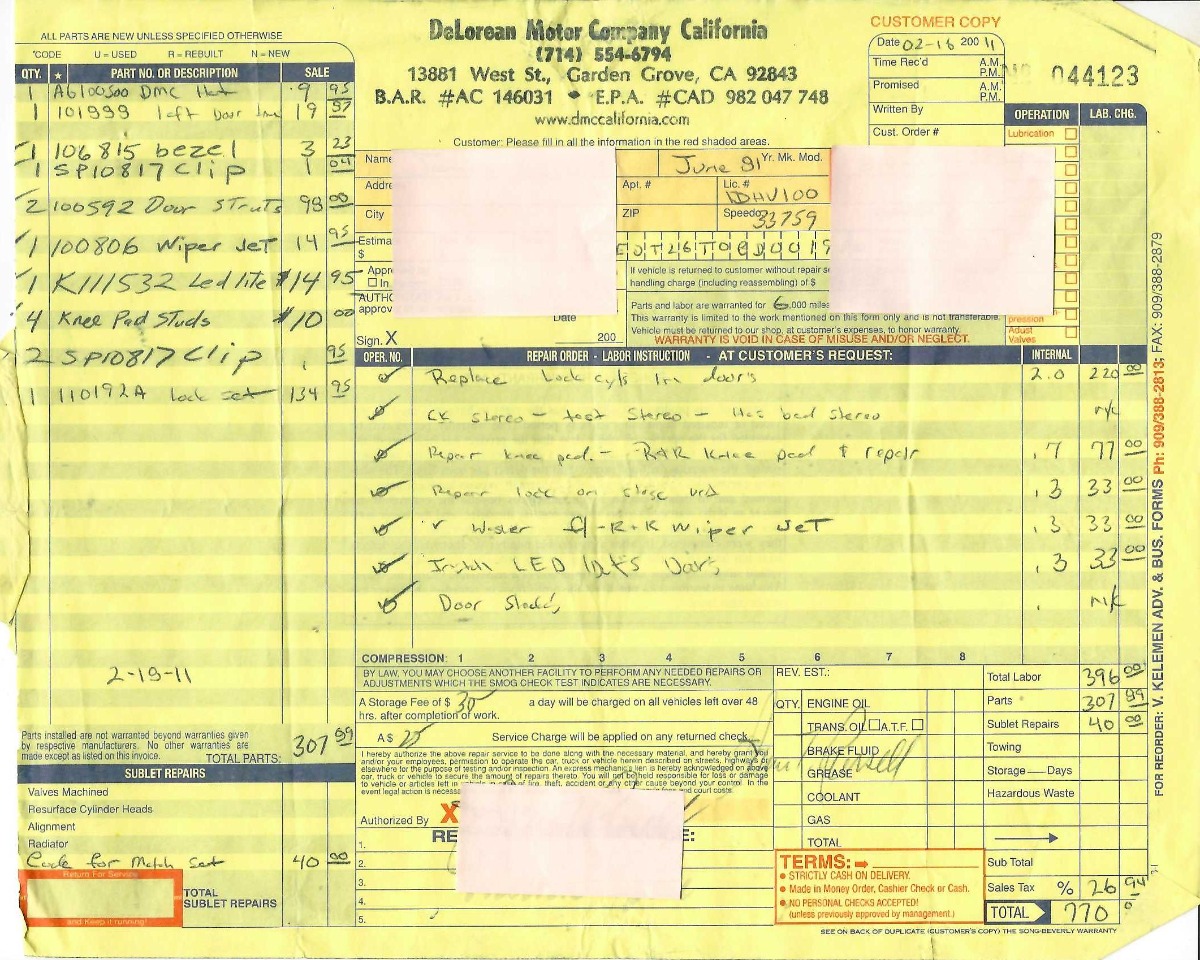 ALL PARTS ARE NEW UNLESS SPECIFIED OTHERWISE
*CODE U = USED R = REBUILT N = NEW
QTY. ★ PART NO. OR DESCRIPTION SALE
1 A6100500 DMC Hat 9 95
1 101999 left Door 19 97
1 106815 bezel 3 23
1 SP10817 Clip 1 04
2 100592 Door Struts 98 00
1 100806 Wiper Jet 14 95
1 K111532 Led lite $14 95
4 Knee Pad Studs $10 00
2 SP10817 Clip 1 95
1 110192A lock set 134 95
2-19-11
Parts installed are not warranted beyond warranties given
by respective manufacturers. No other warranties are
made except as listed on this invoice.
TOTAL PARTS: 307 99
SUBLET REPAIRS
Valves Machined
Resurface Cylinder Heads
Alignment
Radiator
Code for Match Set 40 00
Return For Service
and Keep it running!
TOTAL
SUBLET REPAIRS
DeLorean Motor Company California
(714) 554-6794
13881 West St., Garden Grove, CA 92843
B.A.R. #AC 146031 • E.P.A. #CAD 982 047 748
www.dmccalifornia.com
CUSTOMER COPY
Date 02-16 2011
Time Rec'd A.M.
P.M.
Promised A.M.
P.M.
Written By
Cust. Order #
044123
Customer: Please fill in all the information in the red shaded areas.
Name
June 81 Yr. Mk. Mod.
Addre
Apt. #
Lic. #
1DHV100
City
ZIP
Speedo
33759
Estima
$
If vehicle is returned to customer without repair s
handling charge (including reassembling) of $
Appr
In
AUTHO
approv
Date
Sign. X 200
Parts and labor are warranted for 6,000 miles
This warranty is limited to the work mentioned on this form only and is not transferable.
Vehicle must be returned to our shop, at customer's expenses, to honor warranty.
WARRANTY IS VOID IN CASE OF MISUSE AND/OR NEGLECT.
OPERATION LAB. CHG.
Lubrication
pression
Adjust
Valves
OPER. NO. REPAIR ORDER - LABOR INSTRUCTION - AT CUSTOMER'S REQUEST: INTERNAL
Replace Lock cyls in door's 2.0 220 00
CK stereo - test Stereo - Has bad stereo n/c
Repair knee pad - R&R Knee pad & repair .7 77 00
Repair lock on .3 33 00
R+R Wiper Jet .3 33 00
Install LED .3 33 00
Door n/c
COMPRESSION: 1 2 3 4 5 6 7 8
BY LAW, YOU MAY CHOOSE ANOTHER FACILITY TO PERFORM ANY NEEDED REPAIRS OR
ADJUSTMENTS WHICH THE SMOG CHECK TEST INDICATES ARE NECESSARY.
A Storage Fee of $ 35 a day will be charged on all vehicles left over 48
hrs. after completion of work.
A $ 25 Service Charge will be applied on returned check.
I hereby authorize the above repair service to be done along with the necessary material, and hereby grant you
Authorized By X
RE E:
1.
2.
3.
4.
5.
REV. EST.:
QTY. ENGINE OIL
TRANS. OIL A.T.F.
BRAKE FLUID
GREASE
COOLANT
GAS
TOTAL
TERMS:
• STRICTLY CASH ON DELIVERY.
• Made in Money Order, Cashier Check or Cash.
• NO PERSONAL CHECKS ACCEPTED!
(unless previously approved by management.)
Total Labor 396 00
Parts 307 99
Sublet Repairs 40 00
Towing
Storage — Days
Hazardous Waste
Sub Total
Sales Tax % 26 94
TOTAL 770
SEE ON BACK OF DUPLICATE (CUSTOMER'S COPY) THE SONG-BEVERLY WARRANTY
FOR REORDER: V. KELEMEN ADV. & BUS. FORMS Ph: 909/388-2813; FAX: 909/388-2879